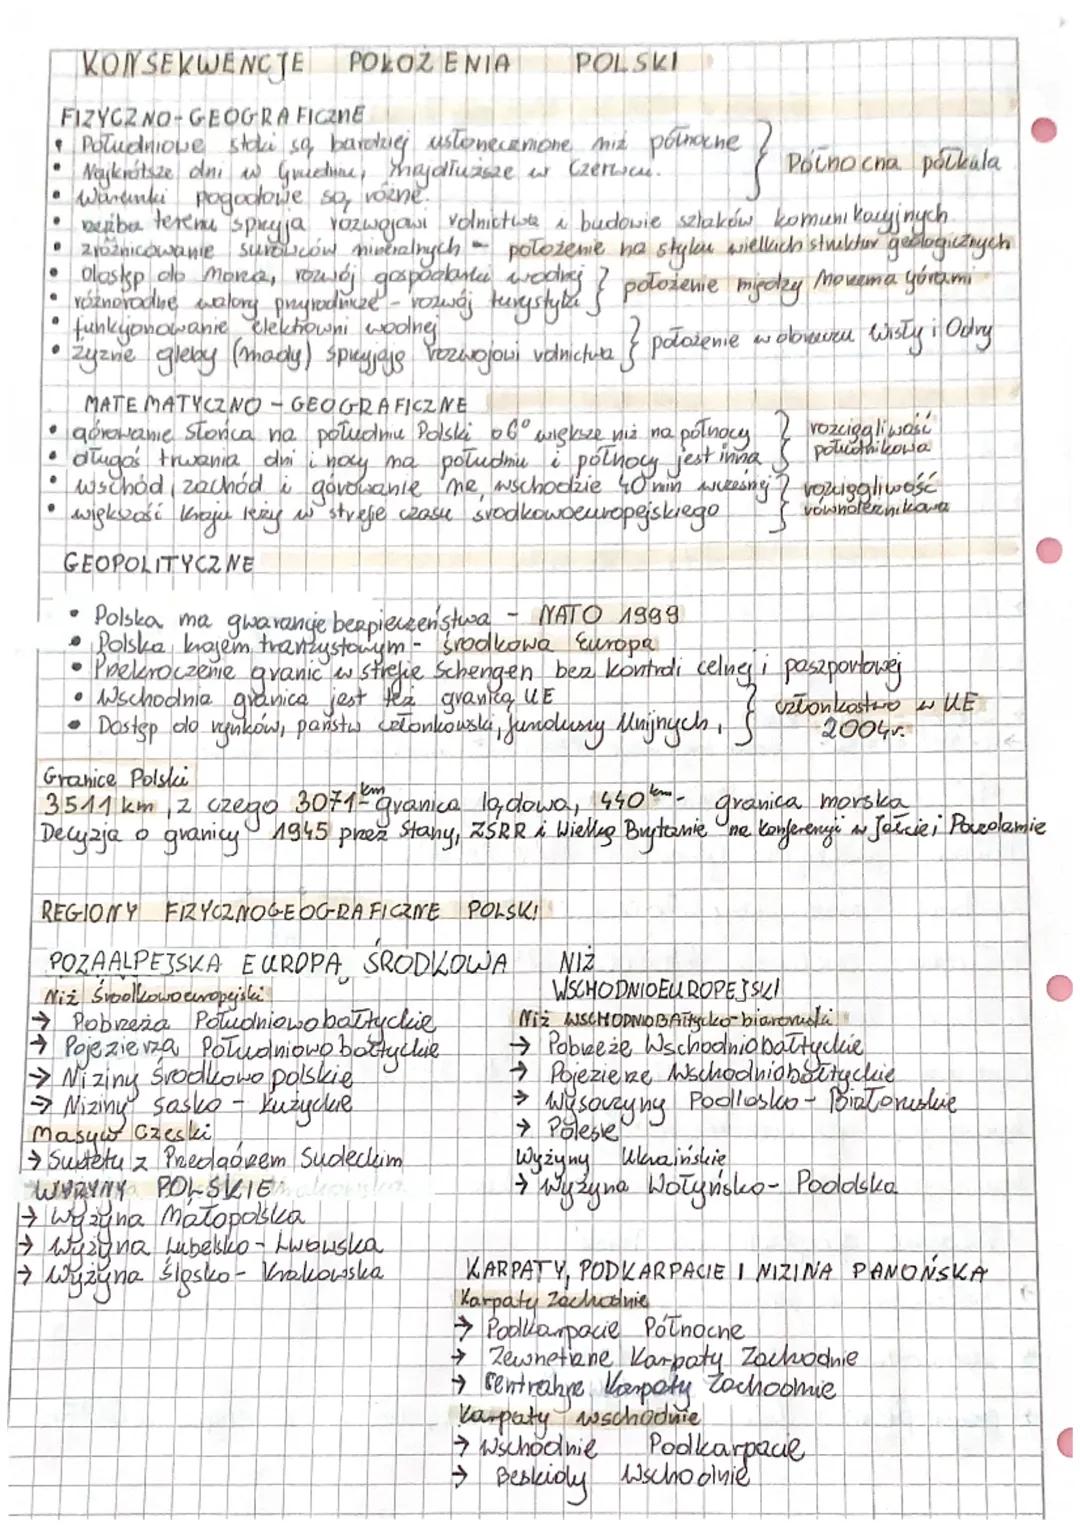 KONSEKWENCJE POŁOŻENIA POLSKI
FIZYCZNO-GEOGRAFICZNE
• Południowe stoki są bardziej usłonecznione niż północne
• Najkrótsze dni w Grudniu, najdłuższe w Czerwcu. } Północna półkula
• Warunki pogodowe są różne.
• rzeźba terenu sprzyja rozwojowi rolnictwa i budowie szlaków komunikacyjnych
• zróżnicowanie surowców mineralnych - położenie na styku wielkich struktur geologicznych
• Dostęp do morza, rozwój gospodarki wodnej } położenie między Morzem a górami
• różnorodne walory przyrodnicze - rozwój turystyki
• funkcjonowanie elektrowni wodnej
• żyzne gleby (mady) sprzyjają rozwojowi rolnictwa } położenie w obrzeżu Wisły i Odry
MATEMATYCZNO - GEOGRAFICZNE
• górowanie Słońca na południu Polski o 6° większe niż na północy } rozciągliwość
• długoś trwania dni i nocy na południu i północy jest inna południkowa
• wschód, zachód i górowanie na wschodzie 40 min wcześniej } rozciągliwość
• większość kraju leży w strefie czasu srodkowoeuropejskiego równoleżnikowa
GEOPOLITYCZNE
• Polska ma gwarancje bezpieczeństwa - NATO 1999
• Polska krajem tranzystowym - środkowa Europa
• Przekroczenie granic w strefie Schengen bez kontroli celnej i paszportowej
• Wschodnia granica jest też granicą UE } członkostwo w UE
• Dostęp do rynków, państw członkowski, funduszy Unijnych, 2004r.
Granice Polski
3511 km, z czego 3071 km - granica lądowa, 440 km - granica morska
Decyzja o granicy 1945 przez Stany, ZSRR i Wielką Brytanie na konferencji w Jałcie i Poczdamie
REGIONY FIZYCZNOGEOGRAFICZNE POLSKI
POZAALPEJSKA EUROPA ŚRODKOWA
Niż Środkowoeuropejski
→ Pobrzeża Południowobałtyckie
→ Pojezierza Południowobałtyckie
→ Niziny Środkowopolskie
→ Niziny Sasko - Łużyckie
Masyw Czeski
→ Sudety z Przedgórzem Sudeckim
WYŻYNY POLSKIE
→ Wyżyna Małopolska
→ Wyżyna Lubelsko - Lwowska
→ Wyżyna Śląsko - Krakowska
NIŻ
WSCHODNIOEUROPEJSKI
Niż WSCHODNIOBAŁtycko-białoruski
→ Pobrzeże Wschodniobałtyckie
→ Pojezierze Wschodniobałtyckie
→ Wysoczyzny Podlasko - Białoruskie
→ Polesie
Wyżyny Ukraińskie
→ Wyżyna Wołyńsko - Podolska
KARPATY, PODKARPACIE I NIZINA PANOŃSKA
Karpaty Zachodnie
→ Podkarpacie Północne
→ Zewnętrzne Karpaty Zachodnie
→ Centralne Karpaty Zachodnie
Karpaty wschodnie
→ Wschodnie Podkarpacie
→ Beskidy Wschodnie